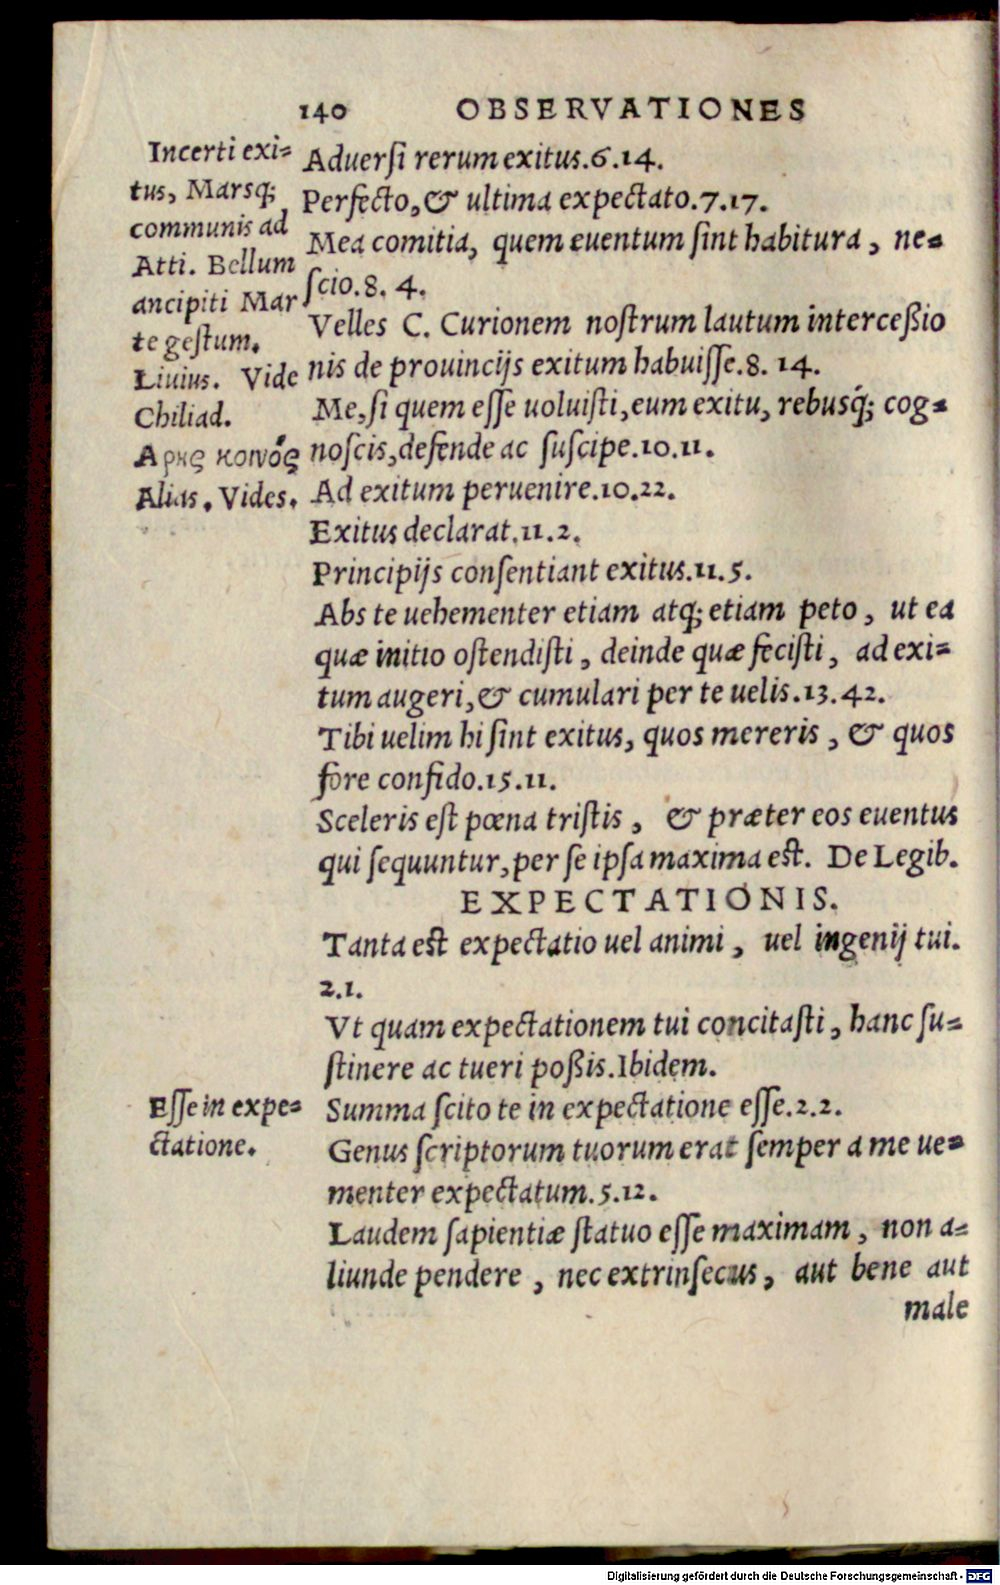 140 OBSERVATIONES
Incerti exi=
tus, Marsq;
communis ad
Atti. Bellum
ancipiti Mar
te gestum.
Liuius. Vide
Chiliad.
Αρης κοινός
Alias. Vides.
Aduersi rerum exitus.6.14.
Perfecto, & ultima expectato.7.17.
Mea comitia, quem euentum sint habitura, ne=
scio.8. 4.
Velles C. Curionem nostrum lautum interceßio
nis de prouincijs exitum habuisse.8. 14.
Me, si quem esse uoluisti, eum exitu, rebusq́; cog=
noscis, defende ac suscipe.10.11.
Ad exitum peruenire.10.22.
Exitus declarat.11.2.
Principijs consentiant exitus.11.5.
Abs te uehementer etiam atq; etiam peto, ut ea
quæ initio ostendisti, deinde quæ fecisti, ad exi=
tum augeri, & cumulari per te uelis.13.42.
Tibi uelim hi sint exitus, quos mereris, & quos
fore confido.15.11.
Sceleris est pœna tristis, & præter eos euentus
qui sequuntur, per se ipsa maxima est. De Legib.
EXPECTATIONIS.
Tanta est expectatio uel animi, uel ingenij tui.
2.1.
Vt quam expectationem tui concitasti, hanc su=
stinere ac tueri poßis. Ibidem.
Esse in expe=
ctatione.
Summa scito te in expectatione esse.2.2.
Genus scriptorum tuorum erat semper a me ue=
menter expectatum.5.12.
Laudem sapientiæ statuo esse maximam, non a=
liunde pendere, nec extrinsecus, aut bene aut
male
Digitalisierung gefördert durch die Deutsche Forschungsgemeinschaft - DFG